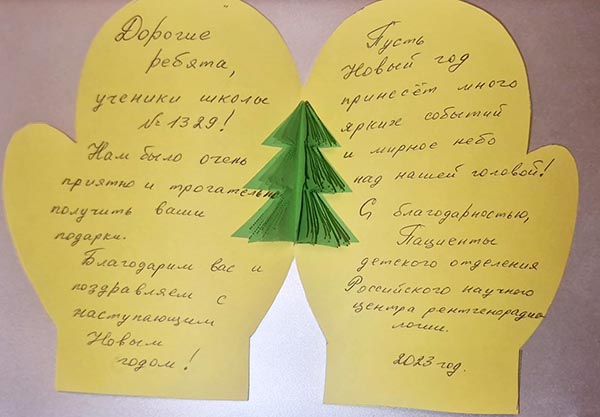 Дорогие
ребята,
ученики школы
№ 1329!
Нам было очень
приятно и трогательно
получить ваши
подарки.
Благодарим вас и
поздравляем с
наступающим
Новым
годом!
Пусть
Новый год
принесёт много
ярких событий
и мирное небо
над нашей головой!
С благодарностью,
Пациенты
детского отделения
Российского научного
центра рентгенорадио-
логии.
2023 год.